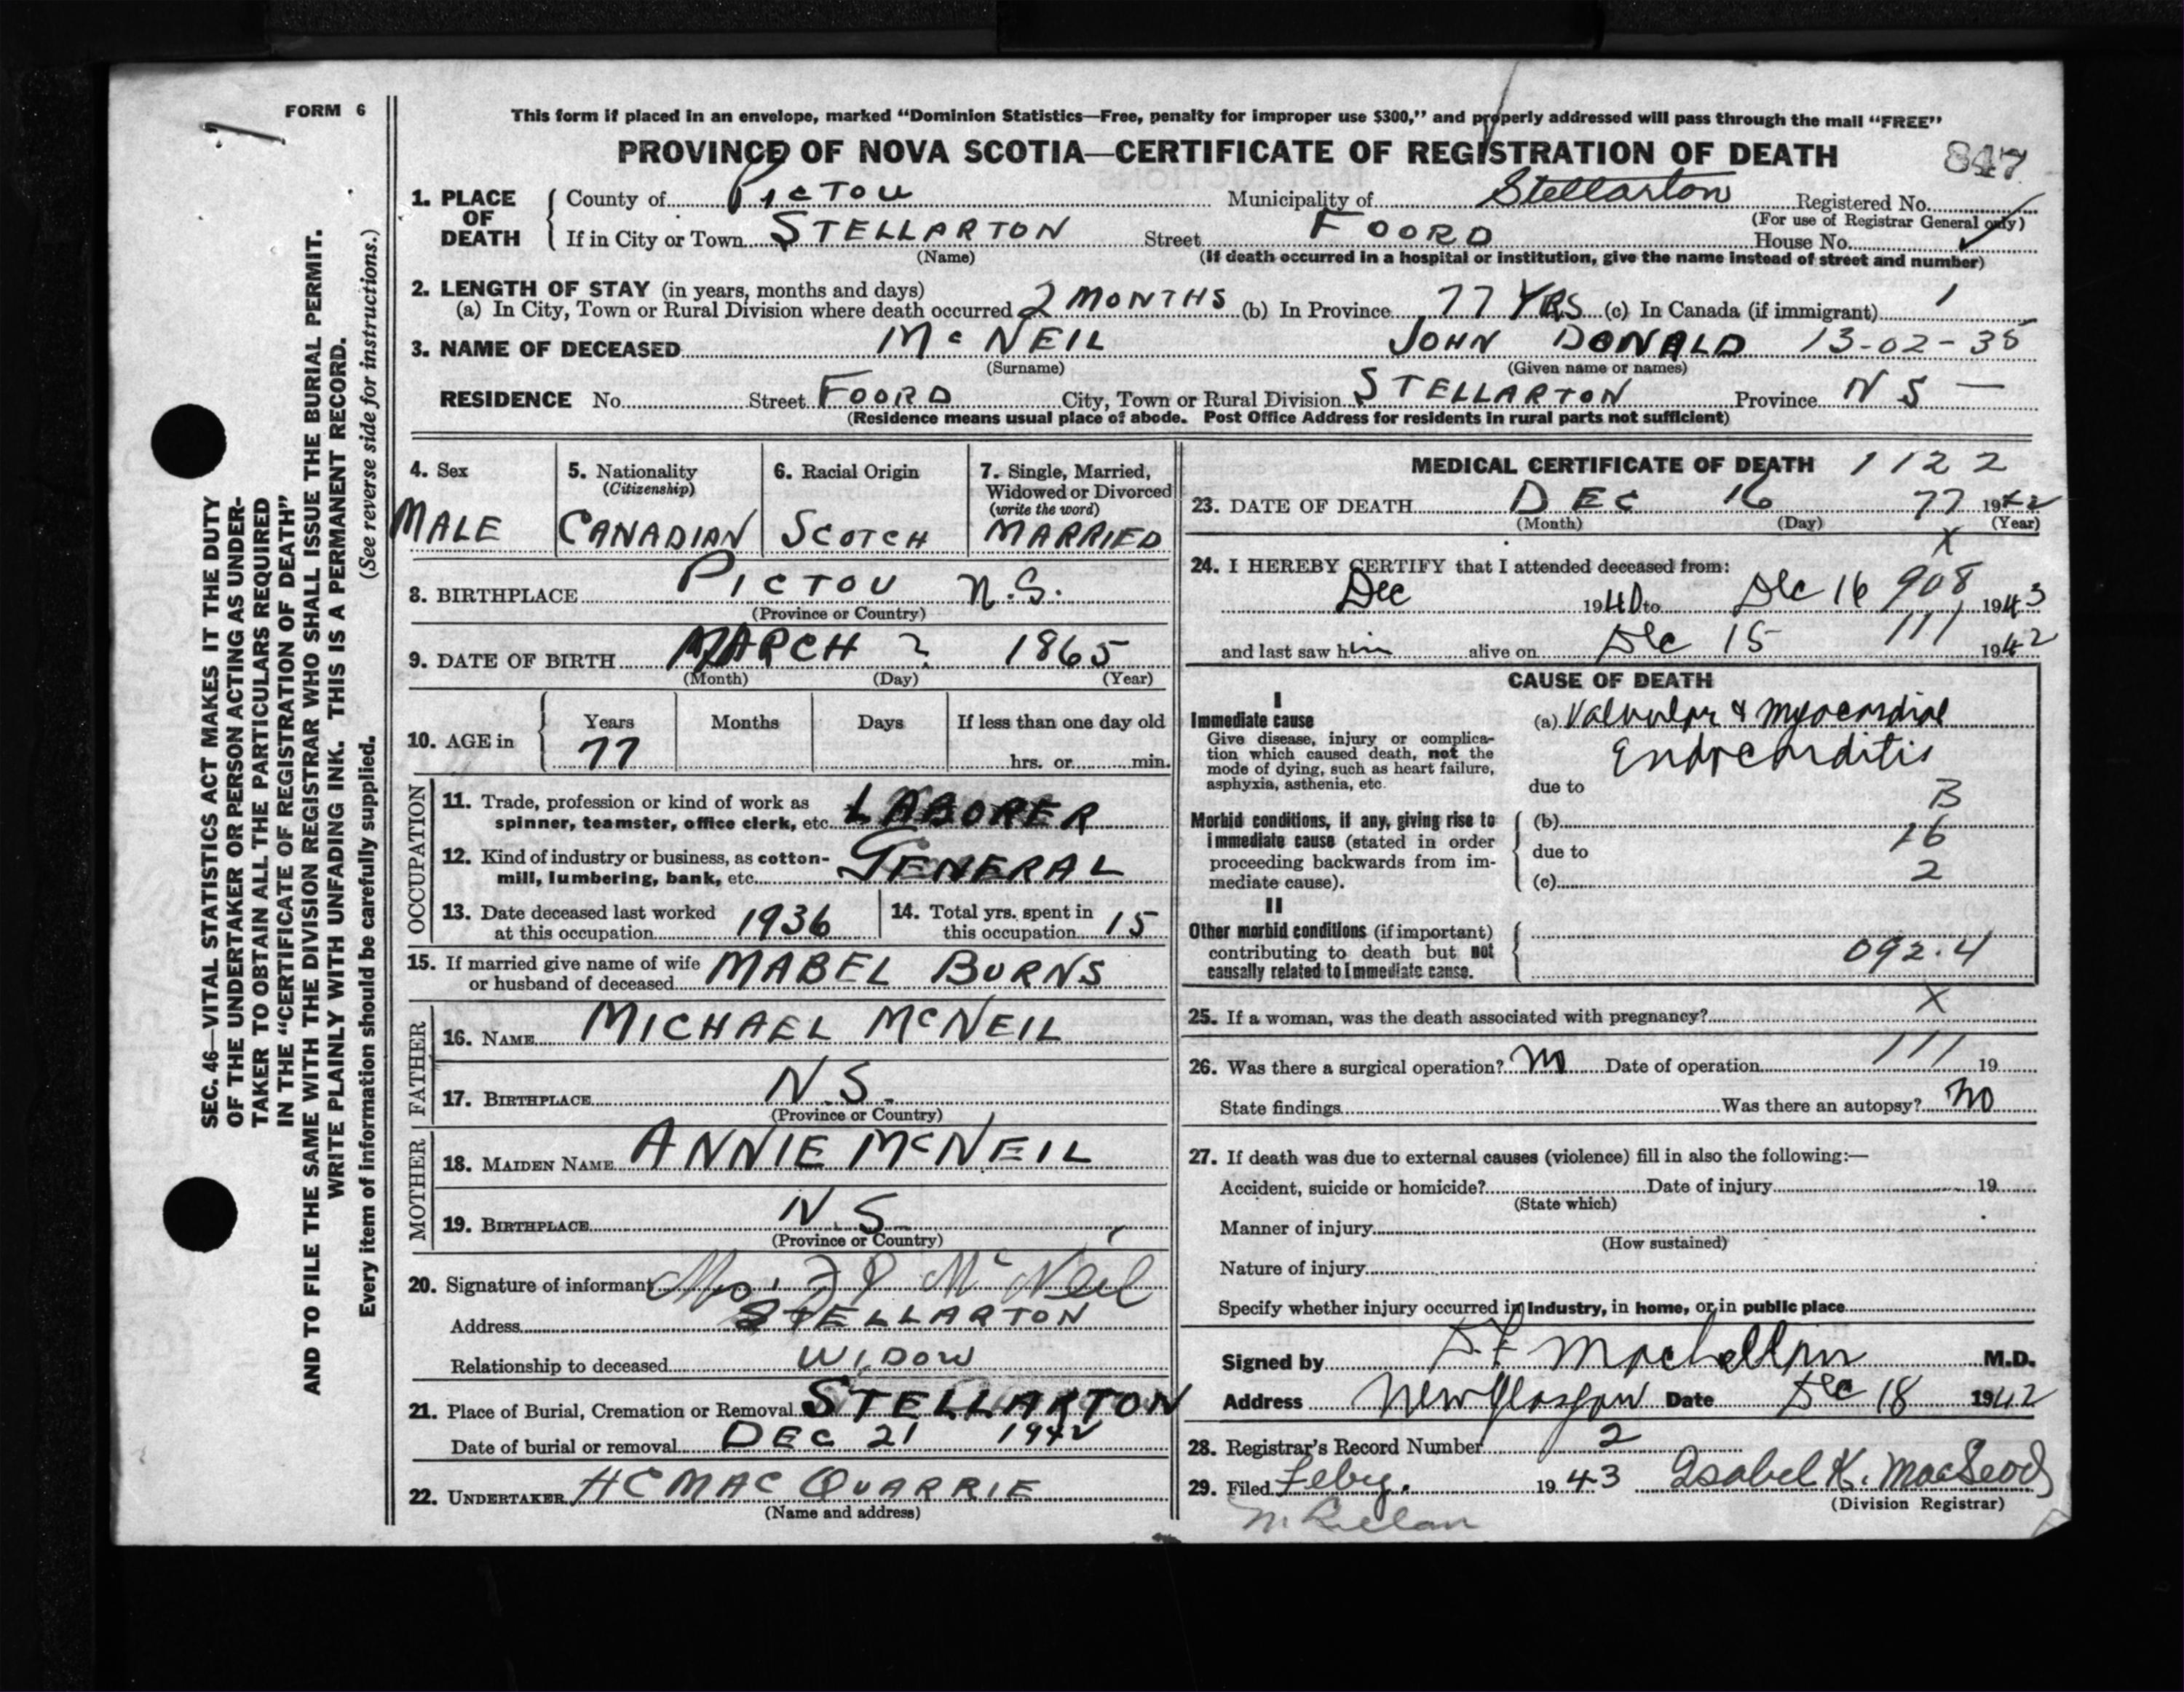 FORM 6
This form if placed in an envelope, marked "Dominion Statistics—Free, penalty for improper use $300," and properly addressed will pass through the mail "FREE"
PROVINCE OF NOVA SCOTIA—CERTIFICATE OF REGISTRATION OF DEATH 847
SEC. 46—VITAL STATISTICS ACT MAKES IT THE DUTY
OF THE UNDERTAKER OR PERSON ACTING AS UNDER-
TAKER TO OBTAIN ALL THE PARTICULARS REQUIRED
IN THE "CERTIFICATE OF REGISTRATION OF DEATH"
AND TO FILE THE SAME WITH THE DIVISION REGISTRAR WHO SHALL ISSUE THE BURIAL PERMIT.
WRITE PLAINLY WITH UNFADING INK. THIS IS A PERMANENT RECORD.
Every item of information should be carefully supplied. (See reverse side for instructions.)
1. PLACE OF DEATH
County of PICTOU Municipality of Stellarton Registered No.
(For use of Registrar General only)
If in City or Town STELLARTON Street FOORD House No.
(Name) (If death occurred in a hospital or institution, give the name instead of street and number)
2. LENGTH OF STAY (in years, months and days)
(a) In City, Town or Rural Division where death occurred 2 MONTHS (b) In Province 77 YRS (c) In Canada (if immigrant) 1
3. NAME OF DECEASED McNEIL JOHN DONALD 13-02-35
(Surname) (Given name or names)
RESIDENCE No. Street FOORD City, Town or Rural Division STELLARTON Province N S —
(Residence means usual place of abode. Post Office Address for residents in rural parts not sufficient)
4. Sex
MALE
5. Nationality
(Citizenship)
CANADIAN
6. Racial Origin
SCOTCH
7. Single, Married,
Widowed or Divorced
(write the word)
MARRIED
8. BIRTHPLACE PICTOU N.S.
(Province or Country)
9. DATE OF BIRTH MARCH ? 1865
(Month) (Day) (Year)
10. AGE in Years Months Days If less than one day old
77 hrs. or min.
OCCUPATION
11. Trade, profession or kind of work as
spinner, teamster, office clerk, etc. LABORER
12. Kind of industry or business, as cotton-
mill, lumbering, bank, etc. GENERAL
13. Date deceased last worked
at this occupation 1936
14. Total yrs. spent in
this occupation 15
15. If married give name of wife
or husband of deceased MABEL BURNS
FATHER
16. NAME MICHAEL McNEIL
17. BIRTHPLACE N.S.
(Province or Country)
MOTHER
18. MAIDEN NAME ANNIE McNEIL
19. BIRTHPLACE N.S.
(Province or Country)
20. Signature of informant McNeil
Address STELLARTON
Relationship to deceased WIDOW
21. Place of Burial, Cremation or Removal STELLARTON
Date of burial or removal DEC 21 1942
22. UNDERTAKER HC MACQUARRIE
(Name and address)
MEDICAL CERTIFICATE OF DEATH 1122
23. DATE OF DEATH DEC 16 77 1942
(Month) (Day) (Year)
X
24. I HEREBY CERTIFY that I attended deceased from:
Dec 1940 to Dec 16 908 1943
and last saw him alive on Dec 15 111 1942
CAUSE OF DEATH
I
Immediate cause
Give disease, injury or complica-
tion which caused death, not the
mode of dying, such as heart failure,
asphyxia, asthenia, etc.
(a) Valvular & myocardial
Endocarditis
due to
B
Morbid conditions, if any, giving rise to
immediate cause (stated in order
proceeding backwards from im-
mediate cause).
(b)
16
due to
2
(c)
II
Other morbid conditions (if important)
contributing to death but not
causally related to immediate cause.
092.4
X
25. If a woman, was the death associated with pregnancy?
26. Was there a surgical operation? no Date of operation 111 19
State findings Was there an autopsy? no
27. If death was due to external causes (violence) fill in also the following:—
Accident, suicide or homicide? Date of injury 19
(State which)
Manner of injury
(How sustained)
Nature of injury
Specify whether injury occurred in industry, in home, or in public place
Signed by MacLellan M.D.
Address New Glasgow Date Dec 18 1942
28. Registrar's Record Number 2
29. Filed Feby. 1943 Isabel K. MacLeod
(Division Registrar)